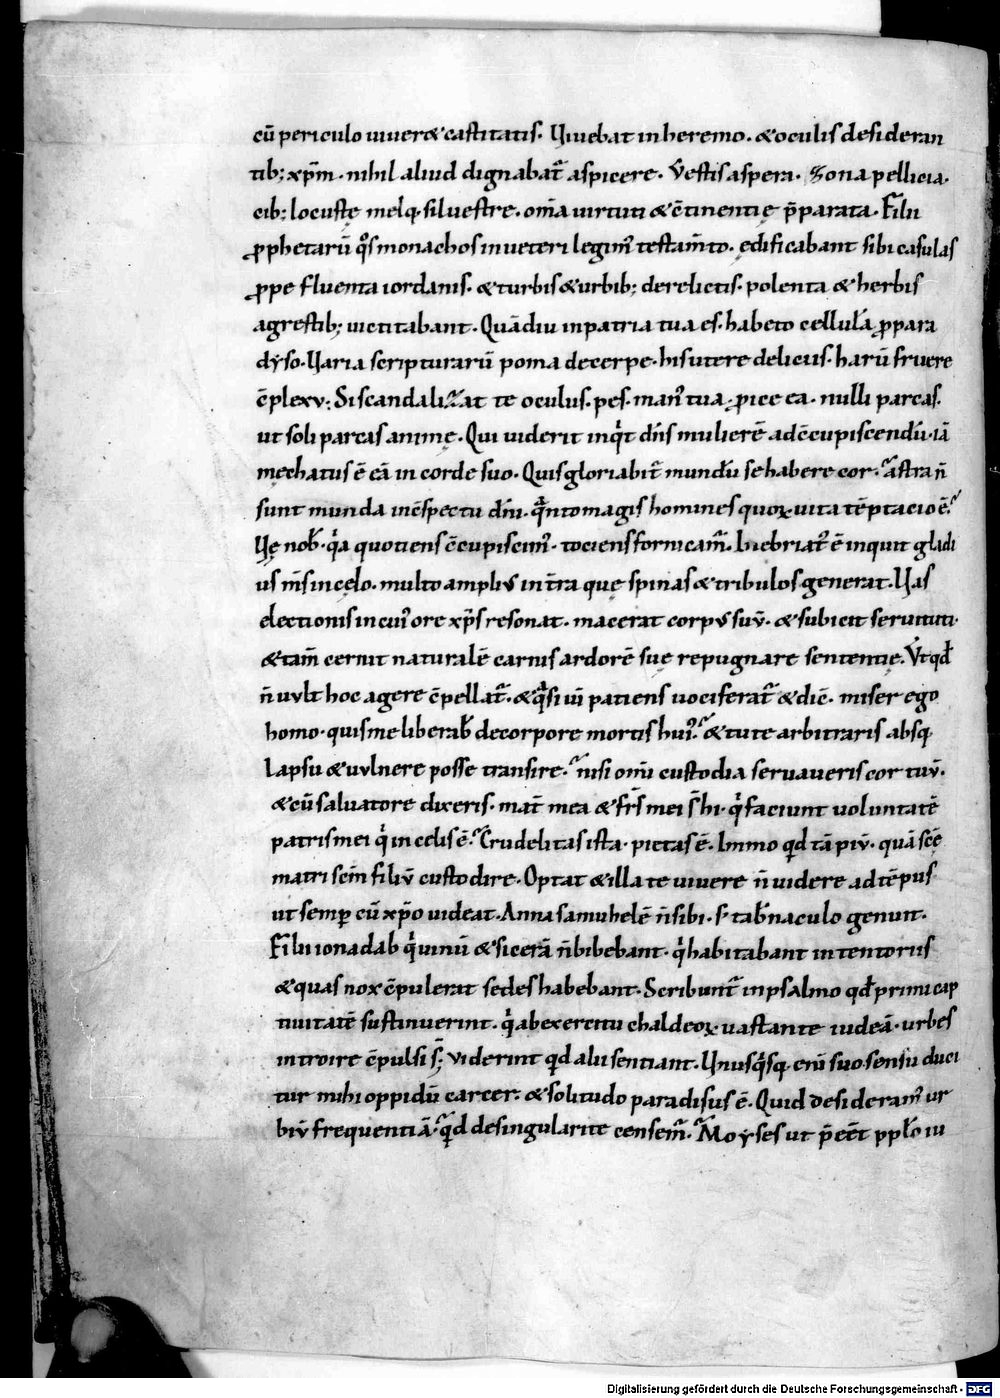 cū periculo uiueret castitatis. Viuebat in heremo. & oculis desideran
tib; xp̄m. nihil aliud dignabat᷑ aspicere. Vestis aspera. Zona pellicia.
cib; locustę melq; siluestre. om̄a uirtuti & c̄tinentię p̄parata. Filii
ꝓphetarū q̊s monachos in ueteri legim᷒ testam̄to. ędificabant sibi casulas
ꝓpe fluenta iordanis. & turbis & urbib; derelictis. polenta & herbis
agrestib; uictitabant. Quādiu in patria tua es. habeto cellulā ꝓ para
dẏso. Varia scripturarū poma decerpe. his utere deliciis. harū fruere
c̄plexv; Si scandaliZat te oculus. pes. man᷒ tua; ꝓice ea. nulli parcas.
ut soli parcas animę. Qui uiderit inq̇t dn̄s mulierē ad c̄cupiscendū. iā
męchatus ē eā in corde suo. Quis gloriabit᷑ mundū se habere cor. astra n̄
sunt munda in c̄spectu dn̄i. q̄nto magis homines quoꝝ uita tēptacio ē.
Vę nob̄. q̇a quotiens c̄cupiscim᷒. tociens fornicam᷒. Inebriat᷒ ē inquit gladi
us m̄s in cęlo. multo ampliv᷒ in t̄ra quę spinas & tribulos generat. Vas
electionis in cui᷒ ore xp̄s resonat. macerat corpv᷒ suv̄. & subicit seruituti.
& tam̄ cernit naturalē carnis ardorē suę repugnare sententię. Vt qd̄
n̄ uvlt hoc agere c̄pellat᷑. & q̄si uī patiens uociferat᷑ & dic̄. miser ego
homo. quis me liberab̄ de corpore mortis hui᷒. & tu te arbitraris absq;
lapsu & uvlnere posse transire. nisi om̄i custodia seruaueris cor tuv̄.
& cū saluatore dixeris. mat̄ mea & fr̄s mei s̄ hi. q̇ faciunt uoluntatē
patris mei q̇ in celis ē. Crudelitas ista. pietas ē. Immo qd tā piv̄. quā scē
matri sc̄m filiv̄ custodire. Optat & illa te uiuere n̄ uidere ad tēpus
ut semꝑ cū xp̄o uideat. Anna samuhelē n̄ sibi. s; tab̄naculo genuit.
Filii ionadab q̇ uinū & sicerā n̄ bibebant. q̇ habitabant in tentoriis
& quas nox c̄pulerat sedes habebant. Scribunt᷑ in psalmo qd̄ primi cap
tiuitatē sustinuerint. q̇ ab exercitu chaldeoꝝ uastante iudeā. urbes
introire c̄pulsi s̄; Viderint qd alii sentiant. Vnusq̇sq; eni᷒ suo sensu duci
tur mihi oppidū carcer. & solitudo paradisus ē. Quid desideram᷒ ur
biv̄ frequentiā. q̇d de singularite censem᷒. Moẏses ut p̄eēt ppl̄o iu
Digitalisierung gefördert durch die Deutsche Forschungsgemeinschaft - DFG